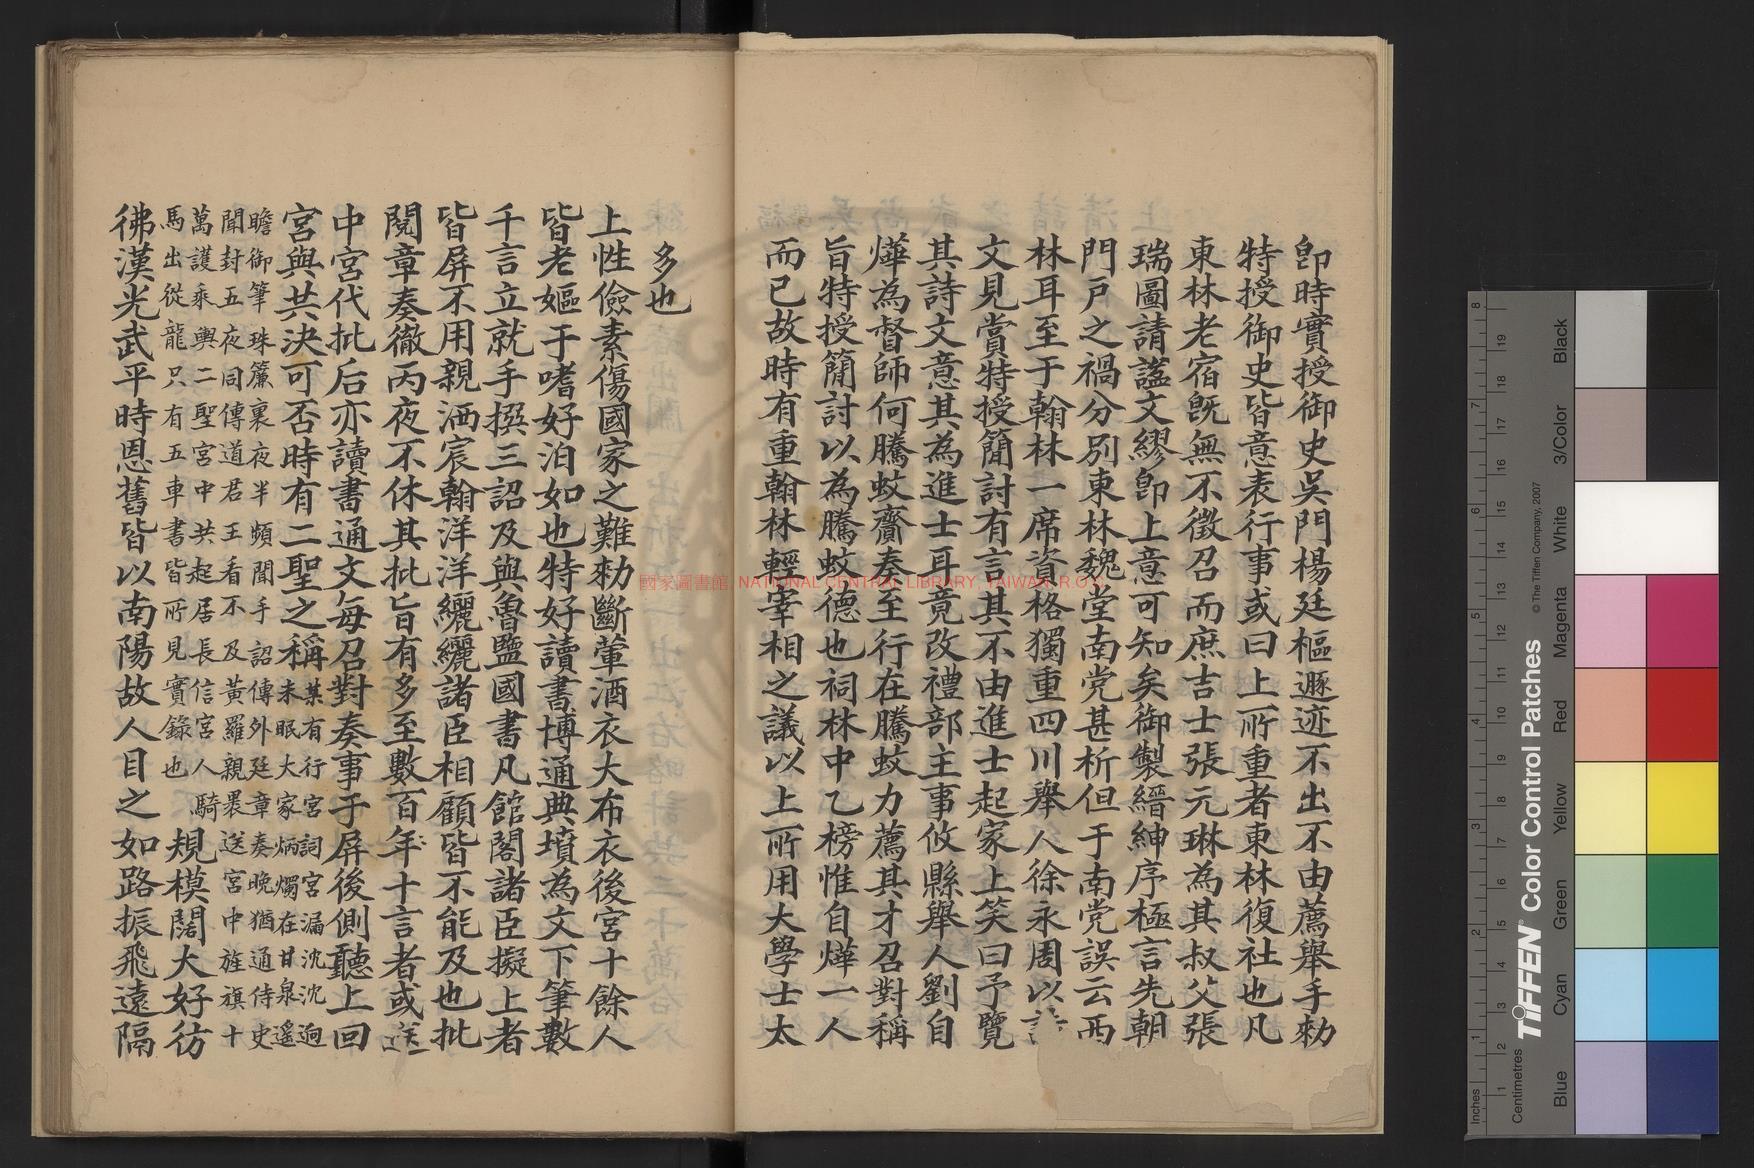 卽時實授御史吳門楊廷樞遯迹不出不由薦舉手勅
特授御史皆意表行事或曰上所重者東林復社也凡
東林老宿旣無不徵召而庶吉士張元琳為其叔父張
瑞圖請諡文繆卽上意可知矣御製縉紳序極言先朝
門戸之禍分別東林魏堂南党甚析但于南党誤云西
林耳至于翰林一席資格獨重四川舉人徐永周以
文見賞特授簡討有言其不由進士起家上笑曰予覽
其詩文意其為進士耳竟改禮部主事攸縣舉人劉自
燁為督師何騰蛟齎奏至行在騰蛟力薦其才召對稱
旨特授簡討以為騰蛟德也祠林中乙榜惟自燁一人
而已故時有重翰林輕宰相之議以上所用大學士太
多也
上性儉素傷國家之難勅斷葷酒衣大布衣後宮十餘人
皆老嫗于嗜好泊如也特好讀書博通典墳為文下筆數
千言立就手撰三詔及與魯監國書凡館閣諸臣擬上者
皆屏不用親洒宸翰洋洋纚纚諸臣相顧皆不能及也批
閱章奏徹丙夜不休其批旨有多至數百年十言者或送
中宮代批后亦讀書通文每召對奏事于屏後側聽上回
宮與共決可否時有二聖之稱某有行宮詞宮漏沈沈迥
未眠大家炳燭在甘泉遙
瞻御筆珠簾裏夜半頻聞手詔傳外廷章奏晚猶通侍史
聞封五夜同傳道君王看不及黃羅親褁送宮中旌旗十
萬護乘輿二聖宮中共起居長信宮人騎
馬出從龍只有五車書皆所見實錄也
規模闊大好彷
彿漢光武平時恩舊皆以南陽故人目之如路振飛遠隔
國家圖書館 NATIONAL CENTRAL LIBRARY, TAIWAN, R.O.C.
Inches
Centimetres
TIFFEN® Color Control Patches
© The Tiffen Company, 2007
Blue
Cyan
Green
Yellow
Red
Magenta
White
3/Color
Black